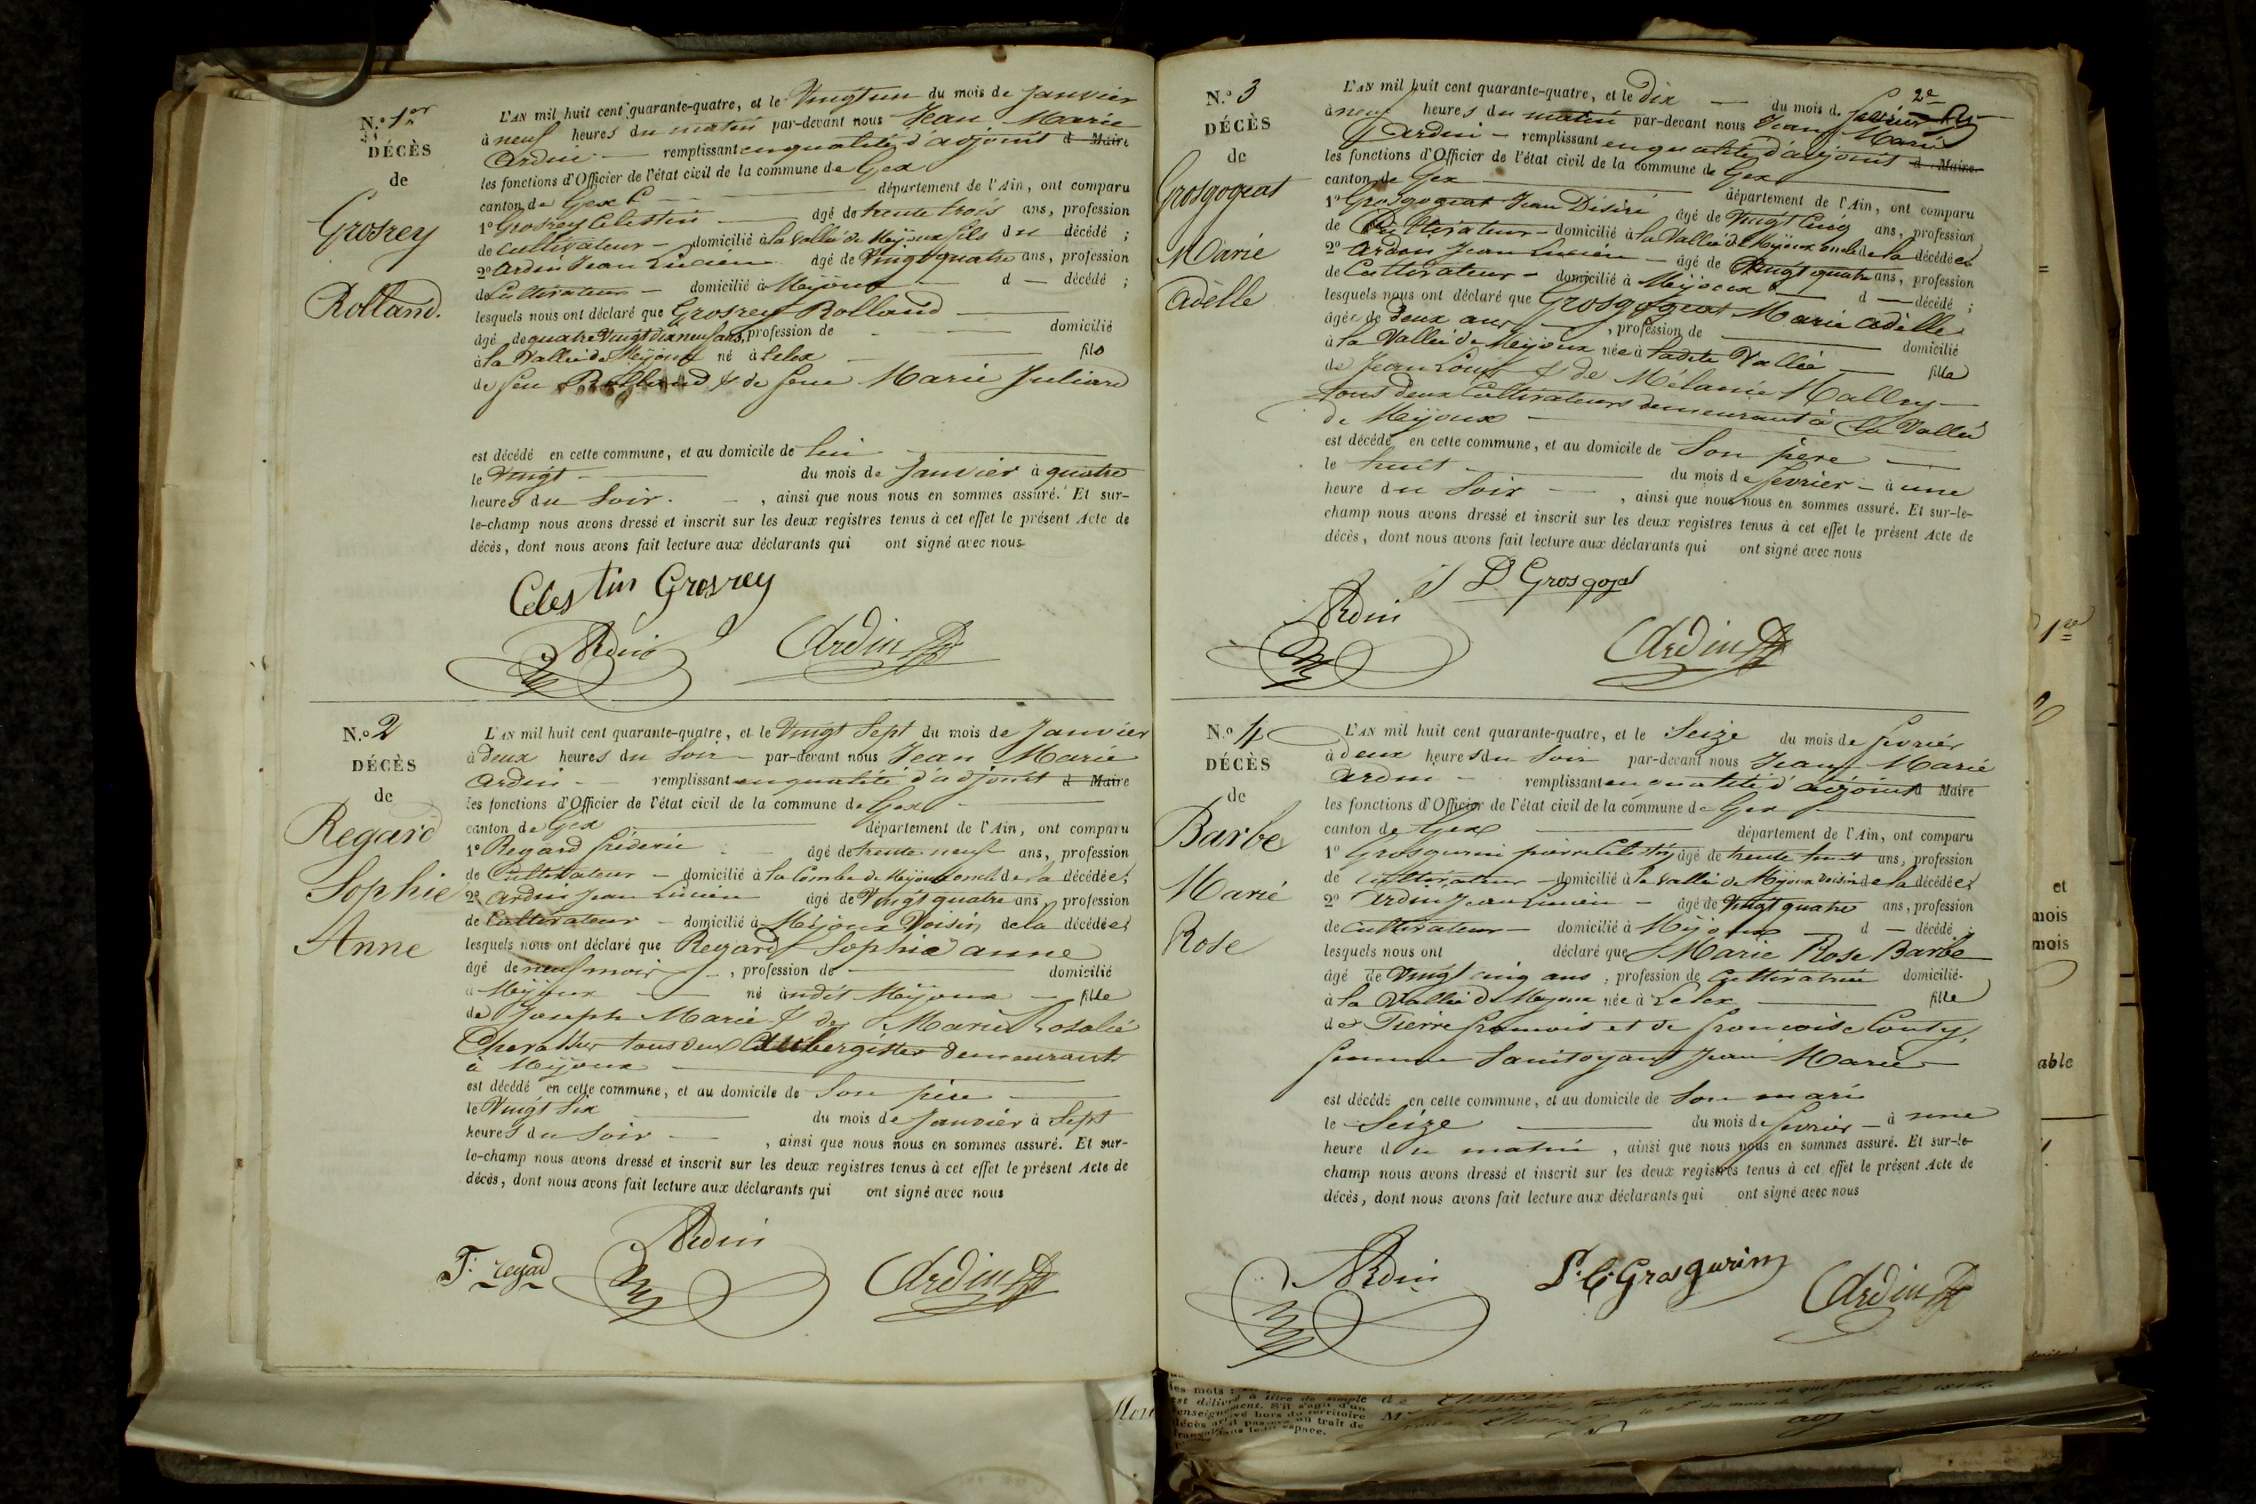 N.º 1er
DÉCÈS
de
Grosrey
Rolland.
L'AN mil huit cent quarante-quatre, et le Vingt un du mois de Janvier
à neuf heures du matin par-devant nous Jean Marie
Ardin remplissant en qualité d'adjoint d Maire
les fonctions d'Officier de l'état civil de la commune de Gex
canton de Gex département de l'Ain, ont comparu
1º Grosrey Celestin âgé de trente trois ans, profession
de Cultivateur domicilié à la Vallée de Mijoux fils du décédé ;
2º Ardin Jean Lucien âgé de Vingt quatre ans, profession
de Cultivateur domicilié à Mijoux d décédé ;
lesquels nous ont déclaré que Grosrey Rolland
âgé de quatre Vingt dix neuf ans, profession de domicilié
à la Vallée de Mijoux né à Lelex fils
de feu Rolland & de feue Marie Juliard
est décédé en cette commune, et au domicile de lui
le Vingt du mois de Janvier à quatre
heures du Soir. , ainsi que nous nous en sommes assuré. Et sur-
le-champ nous avons dressé et inscrit sur les deux registres tenus à cet effet le présent Acte de
décès, dont nous avons fait lecture aux déclarants qui ont signé avec nous
Celestin Grosrey
Ardin Ardin
N.º 2
DÉCÈS
de
Regard
Sophie
Anne
L'AN mil huit cent quarante-quatre, et le Vingt Sept du mois de Janvier
à deux heures du Soir par-devant nous Jean Marie
Ardin remplissant en qualité d'adjoint d Maire
les fonctions d'Officier de l'état civil de la commune de Gex
canton de Gex département de l'Ain, ont comparu
1º Regard fréderic âgé de trente neuf ans, profession
de Cultivateur domicilié à la Combe de Mijoux oncle de la décédée ;
2º Ardin Jean Lucien âgé de Vingt quatre ans, profession
de Cultivateur domicilié à Mijoux Voisin de la décédée ;
lesquels nous ont déclaré que Regard Sophie anne
âgé de neuf mois , profession de domicilié
à Mijoux né audit Mijoux fille
de Joseph Marie & de Marie Rosalie
tous deux Aubergistes demeurants
à Mijoux
est décédé en cette commune, et au domicile de Son père
le Vingt Six du mois de Janvier à Sept
heures du Soir , ainsi que nous nous en sommes assuré. Et sur-
le-champ nous avons dressé et inscrit sur les deux registres tenus à cet effet le présent Acte de
décès, dont nous avons fait lecture aux déclarants qui ont signé avec nous
F. regad Ardin Ardin
N.º 3
DÉCÈS
de
Grosgogeat
Marie
Adèlle
L'AN mil huit cent quarante-quatre, et le Dix du mois d. fevrier
à neuf heures du matin par-devant nous Jean Marie
Ardin remplissant en qualité d'adjoint d Maire
les fonctions d'Officier de l'état civil de la commune de Gex
canton de Gex département de l'Ain, ont comparu
1º Grosgogeat Jean Désiré âgé de Vingt Cinq ans, profession
de Cultivateur domicilié à la Vallée de Mijoux oncle de la décédée
2º Ardin Jean Lucien âgé de Vingt quatre ans, profession
de Cultivateur domicilié à Mijoux d décédé ;
lesquels nous ont déclaré que Grosgogeat Marie Adèlle
âgée de deux ans , profession de domicilié
à la Vallée de Mijoux née à ladite Vallée fille
de Jean Louis & de Mélanie
tous deux Cultivateurs demeurant à la Vallée
de Mijoux
est décédé en cette commune, et au domicile de Son père
le huit du mois de fevrier à une
heure du Soir , ainsi que nous nous en sommes assuré. Et sur-le-
champ nous avons dressé et inscrit sur les deux registres tenus à cet effet le présent Acte de
décès, dont nous avons fait lecture aux déclarants qui ont signé avec nous
Ardin J D Grosgogat Ardin
N.º 4
DÉCÈS
de
Barbe
Marie
Rose
L'AN mil huit cent quarante-quatre, et le Seize du mois de fevrier
à deux heures du Soir par-devant nous Jean Marie
Ardin remplissant en qualité d'adjoint d Maire
les fonctions d'Officier de l'état civil de la commune de Gex
canton de Gex département de l'Ain, ont comparu
1º Grosgurin pierre Celestin âgé de trente huit ans, profession
de Cultivateur domicilié à la Vallée de Mijoux voisin de la décédée
2º Ardin Jean Lucien âgé de Vingt quatre ans, profession
de Cultivateur domicilié à Mijoux d décédé ;
lesquels nous ont déclaré que Marie Rose Barbe
âgé de Vingt cinq ans , profession de Cultivatrice domicilié
à la Vallée de Mijoux née à Lelex fille
de Pierre françois et de françoise
femme Jean Marie
est décédé en cette commune, et au domicile de Son mari
le Seize du mois de fevrier à une
heure du matin , ainsi que nous nous en sommes assuré. Et sur-le-
champ nous avons dressé et inscrit sur les deux registres tenus à cet effet le présent Acte de
décès, dont nous avons fait lecture aux déclarants qui ont signé avec nous
Ardin P. C. Grosgurin Ardin
et
mois
mois
able